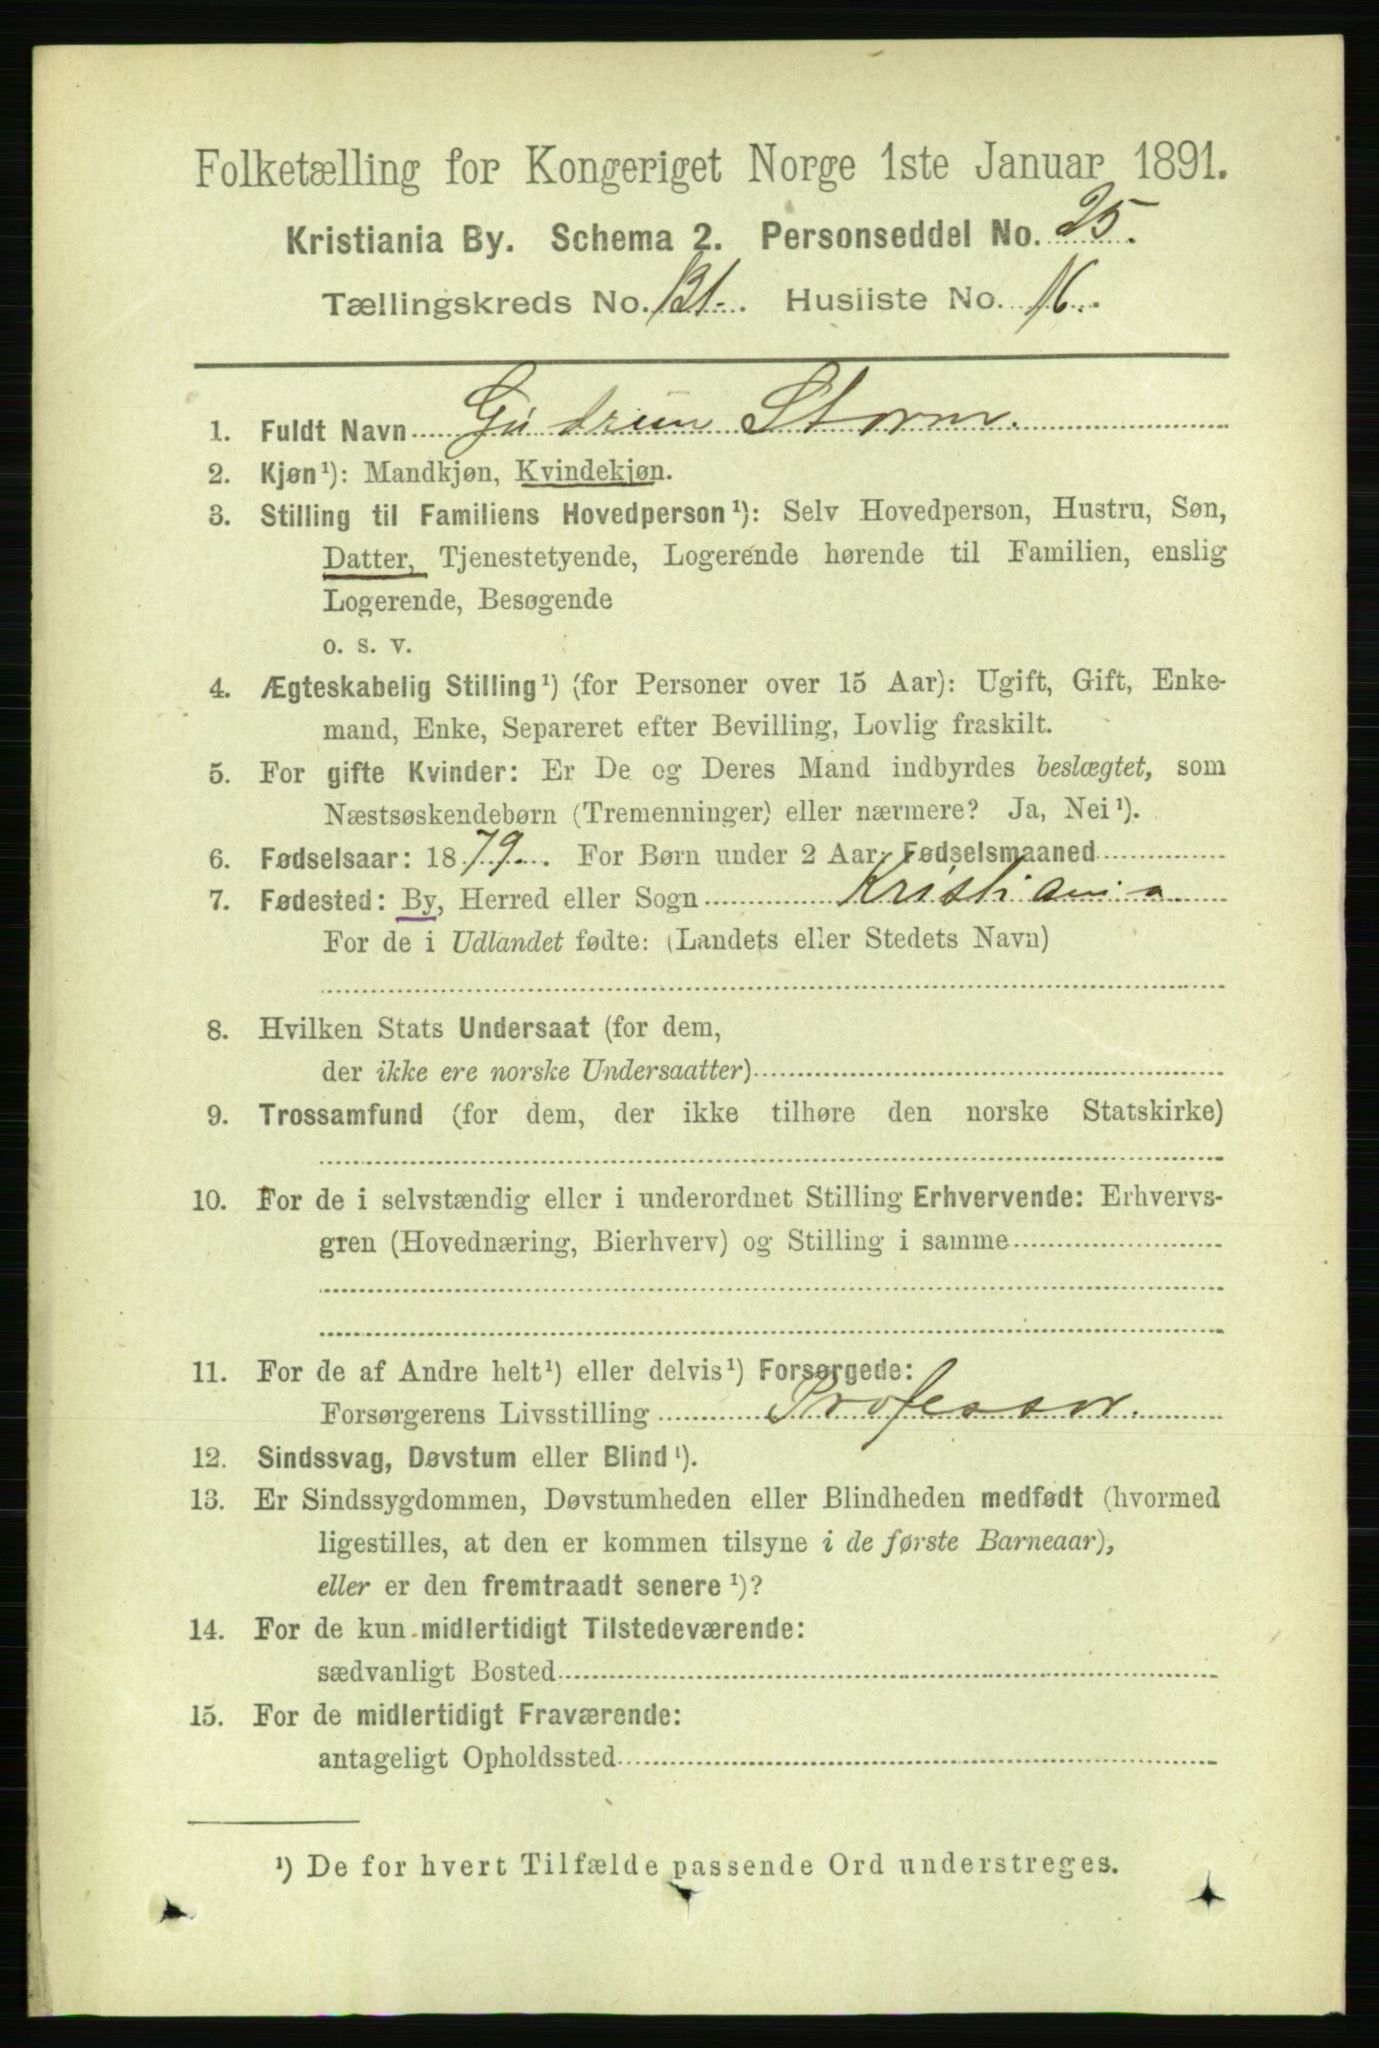 Folketælling for Kongeriget Norge 1ste Januar 1891.
Kristiania By. Schema 2. Personseddel No. 25.
Tællingskreds No. 131. Husliste No. 16.
1. Fuldt Navn Gudrun Storm.
2. Kjøn¹): Mandkjøn, Kvindekjøn.
3. Stilling til Familiens Hovedperson¹): Selv Hovedperson, Hustru, Søn,
Datter, Tjenestetyende, Logerende hørende til Familien, enslig
Logerende, Besøgende
o. s. v.
4. Ægteskabelig Stilling¹) (for Personer over 15 Aar): Ugift, Gift, Enke-
mand, Enke, Separeret efter Bevilling, Lovlig fraskilt.
5. For gifte Kvinder: Er De og Deres Mand indbyrdes beslægtet, som
Næstsøskendebørn (Tremenninger) eller nærmere? Ja, Nei¹).
6. Fødselsaar: 1879. For Børn under 2 Aar: Fødselsmaaned
7. Fødested: By, Herred eller Sogn Kristiania
For de i Udlandet fødte: (Landets eller Stedets Navn)
8. Hvilken Stats Undersaat (for dem,
der ikke ere norske Undersaatter)
9. Trossamfund (for dem, der ikke tilhøre den norske Statskirke)
10. For de i selvstændig eller i underordnet Stilling Erhvervende: Erhvervs-
gren (Hovednæring, Bierhverv) og Stilling i samme
11. For de af Andre helt¹) eller delvis¹) Forsørgede:
Forsørgerens Livsstilling Professor.
12. Sindssvag, Døvstum eller Blind¹).
13. Er Sindssygdommen, Døvstumheden eller Blindheden medfødt (hvormed
ligestilles, at den er kommen tilsyne i de første Barneaar),
eller er den fremtraadt senere¹)?
14. For de kun midlertidigt Tilstedeværende:
sædvanligt Bosted
15. For de midlertidigt Fraværende:
antageligt Opholdssted
¹) De for hvert Tilfælde passende Ord understreges.